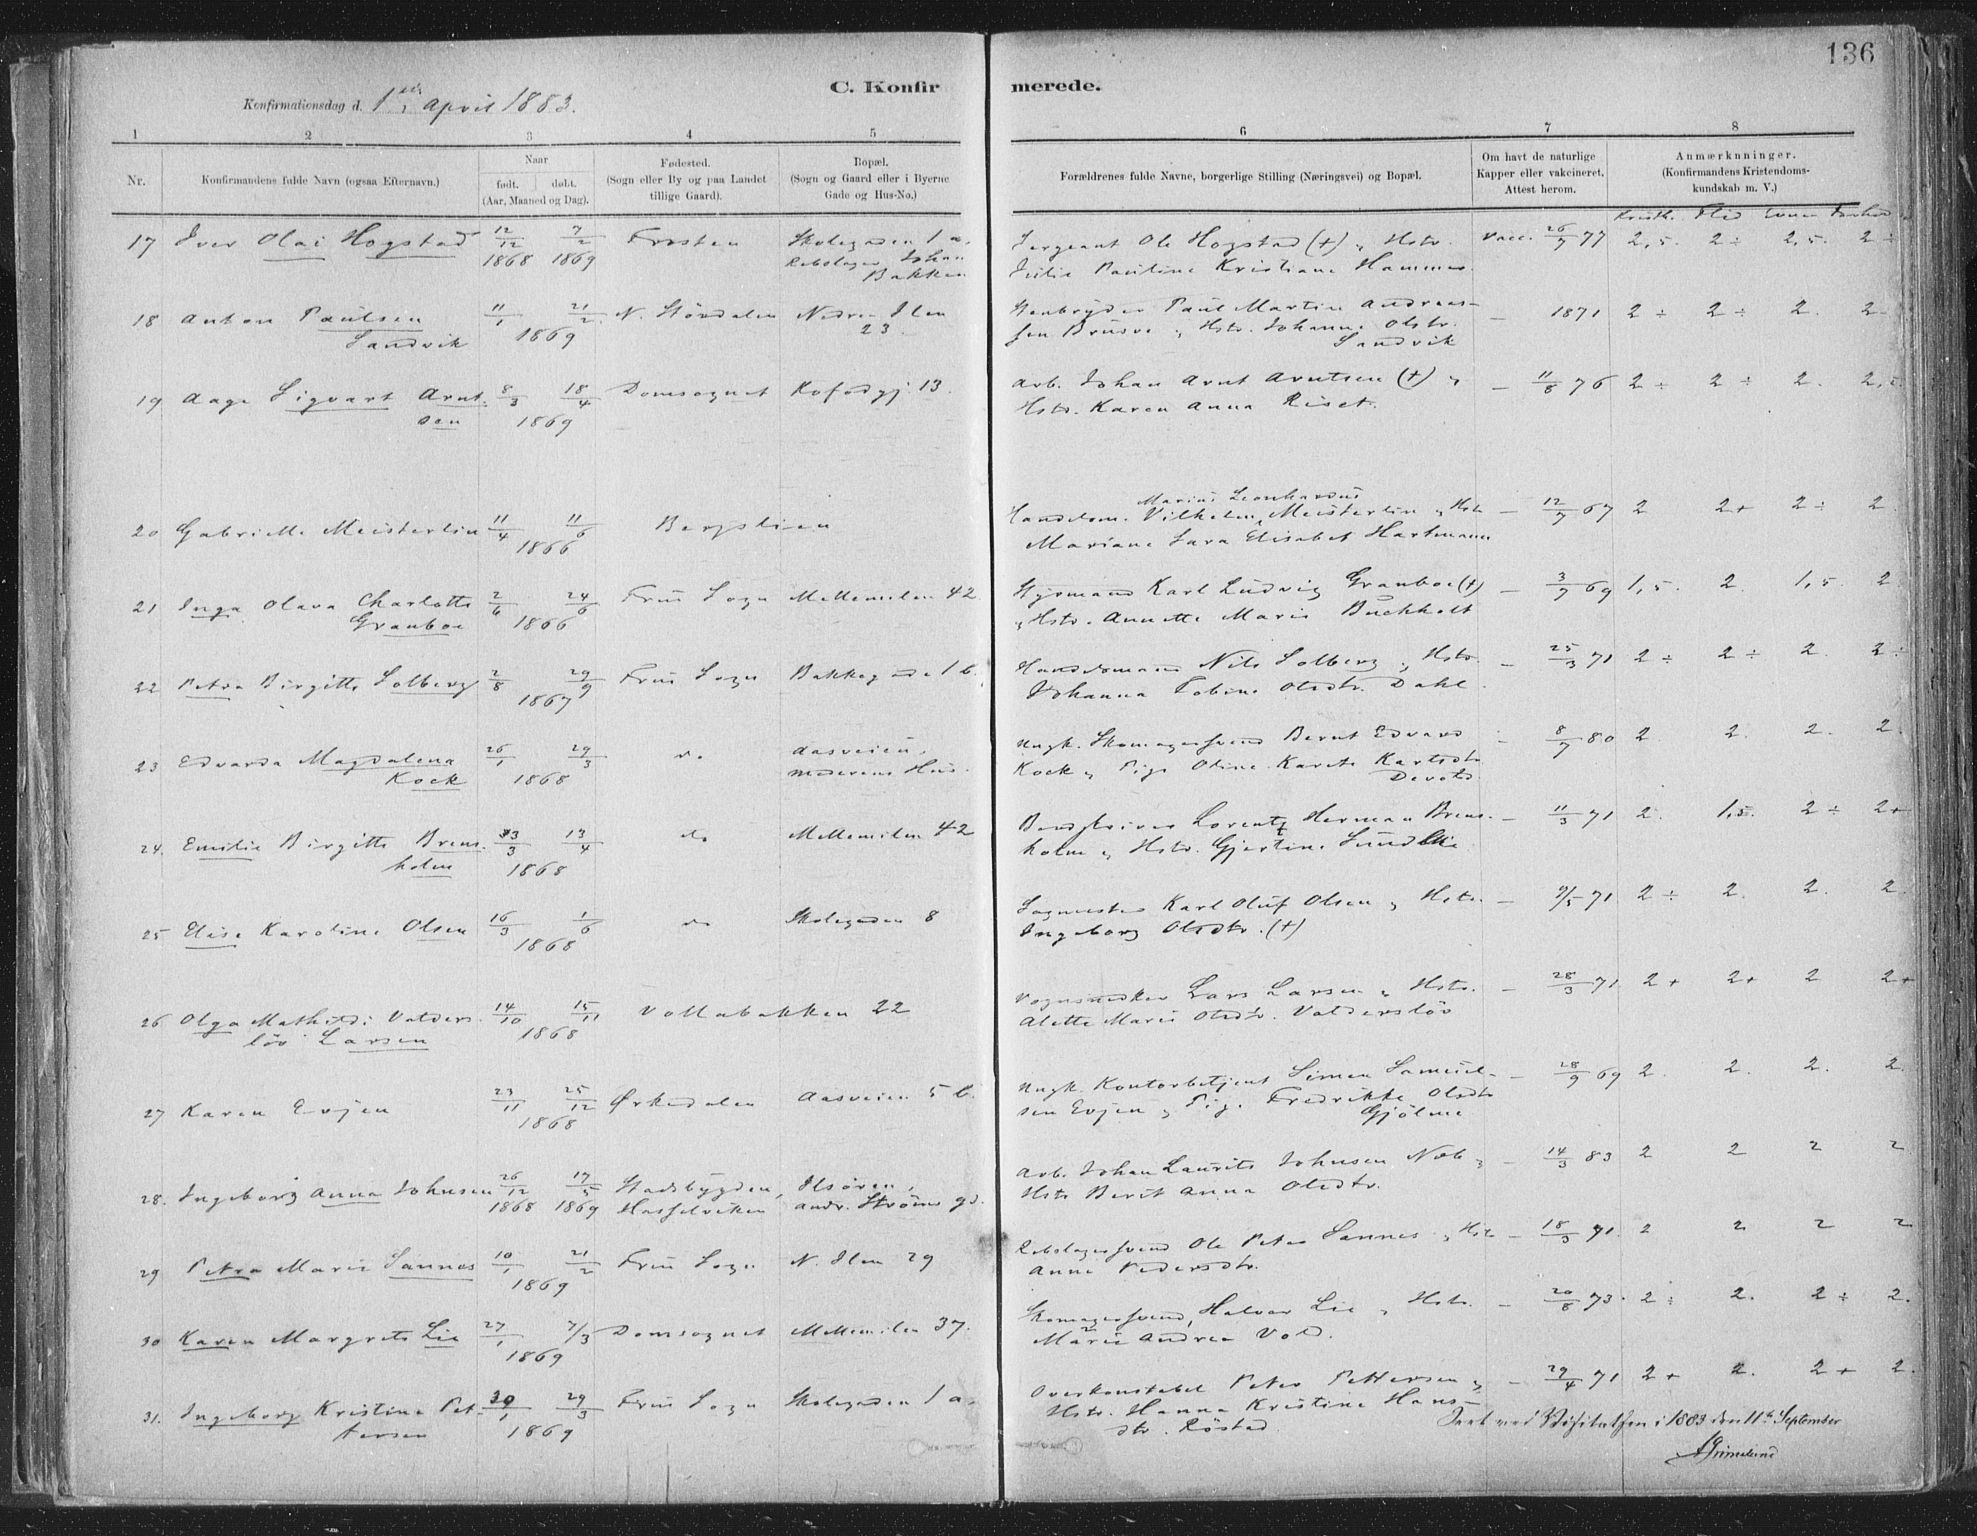 136
C. Konfir merede.
Konfirmationsdag d. 1ste April 1883.
1 2 3 4 5 6 7 8
Nr.
Konfirmandens fulde Navn (ogsaa Efternavn.)
Naar
født. døbt.
(Aar, Maaned og Dag).
Fødested.
(Sogn eller By og paa Landet
tillige Gaard).
Bopæl.
(Sogn og Gaard eller i Byerne
Gade og Hus-No.)
Forældrenes fulde Navne, borgerlige Stilling (Næringsvei) og Bopæl.
Om havt de naturlige
Kopper eller vakcineret,
Attest herom.
Anmærkninger.
(Konfirmandens Kristendoms-
kundskab m. V.)
Kristk. Flid Evner Forhold
17 Iver Olai Hogstad 12/12 7/2 Frosten Skolegaden 1 a. Sergeant Ole Hogstad (+) & Hstr. Vacc. 26/7 77 2,5. 2 ÷ 2,5. 2 ÷
1868 1869 Rebslager Johan Julie Pauline Kristiane Hammer
Bakken
18 Anton Paulsen 11/1 21/2 N. Stördalen Nedre Ilen Stenbryder Paul Martin Andreas- — 1871 2 ÷ 2 ÷ 2. 2.
Sandvik 1869 23. sen Brusve & Hstr. Johanna Olstr.
Sandvik
19 Aage Sigvart Arnt- 8/3 18/4 Domsognet Kofodgj. 13. Arb. Johan Arnt Arntsen (+) & — 11/8 76 2 ÷ 2 ÷ 2. 2,5
sen 1869 Hstr. Karen Anna Riset.
Marius Leonhardus
20 Gabrielle Meisterlin 11/4 11/6 Bergslien Handelsm. Vilhelm Meisterlin & Hstr. — 12/7 67 2 2+ 2 ÷ 2
1866 Mariane Sara Elisabet Hartmann
21 Inga Olava Charlotte 2/6 24/6 Frue Sogn Mellemilen 42 Styrmand Karl Ludvig Granboe (+) — 3/7 69 1,5. 2. 1,5. 2
Granboe 1866 & Hstr. Annette Marie Buchholt
22 Petra Birgitte Solberg 2/8 29/9 Frue Sogn Bakkegaden 1 b. Handelsmand Nils Solberg & Hstr. — 25/3 71 2 ÷ 2 ÷ 2. 2 ÷
1867 Johanna Tobine Olsdtr. Dahl.
23 Edvarda Magdalena 26/1 29/3 do Aasveien, Ungk. Skomagersvend Bernt Edvard — 8/7 80 2 2. 2. 2.
Kock 1868 moderens Hus. Kock & Pige Oline Karete Karlsdtr.
24. Emilie Birgitte Brens- 13/3 13/4 do Mellemilen 42 Bendtsriver Lorentz Herman Brens- — 11/3 71 2. 1,5. 2 ÷ 2+
holm 1868 holm & Hstr. Gjertine Sundlie
25 Elise Karoline Olsen 16/3 1/6 do Skolegaden 8 Sagmester Karl Oluf Olsen & Hstr. — 9/5 71 2 ÷ 2. 2. 2.
1868 Ingeborg Olsdtr. (+)
26 Olga Mathilde Valders- 14/10 15/11 Vollabakken 22 Vognsnedker Lars Larsen & Hstr. — 28/3 71 2 + 2 + 2 2 +
löv Larsen 1868 Alette Marie Olsdtr. Valderslöv
27 Karen Evjen 23/11 25/12 Ørkedalen Aasveien 5 b. Ungk. Kontorbetjent Simen Samuel- — 28/9 69 2. 2. 2. 2.
1868 sen Evjen & Pige Fredrikke Olsdtr
Gjölme
28. Ingeborg Anna Johnsen 26/12 17/5 Stadsbygden, Ilsören, Arb. Johan Laurits Johnsen Næb & — 14/3 83 2 2 2 2
1868 1869 Hasselviken Andr. Ströms gd. Hstr Berit Anna Olsdtr.
29 Petra Marie Sannes 10/1 21/2 Frue Sogn N. Ilen 29 Rebslagersvend Ole Peter Sannes & Hstr — 18/3 71. 2 2 2 2
1869 Anne Pedersdtr.
30 Karen Margrete Lie 27/1 7/3 Domsognet Mellemilen 37. Skomagersvend, Halvor Lie & Hstr. — 20/8 73. 2 ÷ 2. 2 ÷ 2.
1869 Marie Andrea Vold.
31. Ingeborg Kristine Pet- 30/1 29/3 Frue Sogn Skolegaden 1 a. Overkonstabel Peter Pettersen & — 29/4 71 2 + 2. 2 + 2.
tersen 1869 Hstr. Hanna Kristine Hans-
dtr. Röstad
Seet ved Visitatsen i 1883 den 11te September
Grimelund